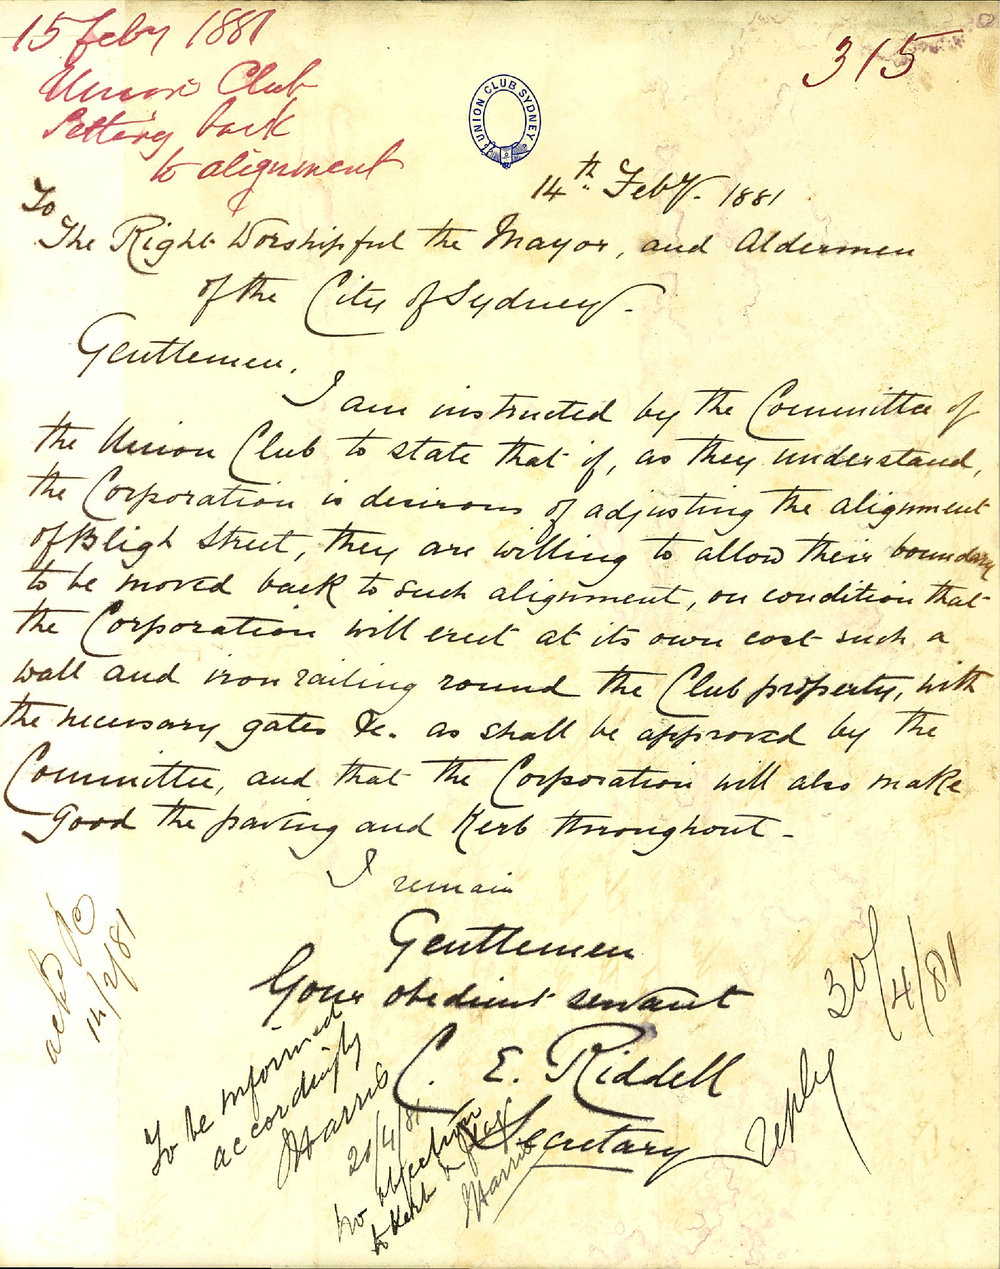 15 Feby 1881
Union Club
Setting back
to alignment
315
UNION CLUB SYDNEY
14th Feby. 1881
To
The Right Worshipful the Mayor, and Aldermen
of the City of Sydney.
Gentlemen,
I am instructed by the Committee of
the Union Club to state that if, as they understand,
the Corporation is desirous of adjusting the alignment
of Bligh Street, they are willing to allow their boundary
to be moved back to such alignment, on condition that
the Corporation will erect at its own cost such a
wall and iron railing round the Club property, with
the necessary gates &c. as shall be approved by the
Committee, and that the Corporation will also make
good the paving and Kerb throughout.
I remain
Gentlemen
Your obedient servant
C. E. Riddell
Secretary
ackd
14/2/81
To be informed
accordingly
Harris
20/4/81
No objection
to Kerb & flag
Harris
reply
30/4/81